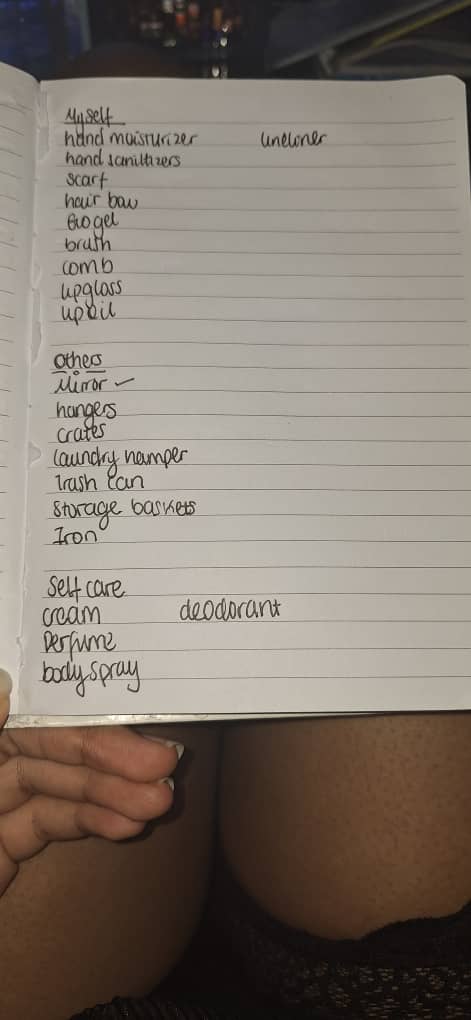 Myself
hand moisturizer
hand sanitizers
scarf
hair bow
brush
comb
lipgloss
lip oil
Others
Mirror ✓
hangers
crates
laundry hamper
Trash can
storage baskets
Iron
self care
cream deodorant
Perfume
body spray